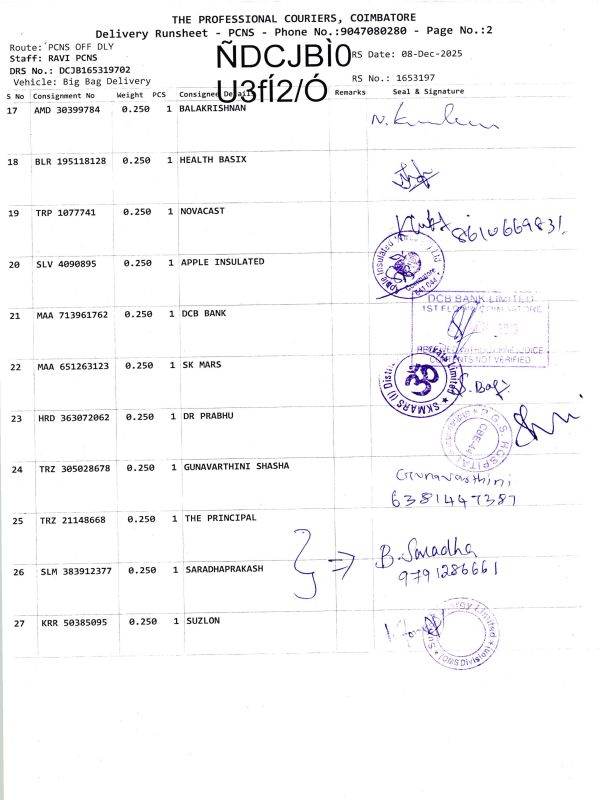 THE PROFESSIONAL COURIERS, COIMBATORE
Delivery Runsheet - PCNS - Phone No.:9047080280 - Page No.:2
Route: PCNS OFF DLY
Staff: RAVI PCNS
DRS No.: DCJB165319702
Vehicle: Big Bag Delivery
ÑDCJBÌ0
U3fÍ2/Ó
RS Date: 08-Dec-2025
RS No.: 1653197
S No Consignment No Weight PCS Consignee Details Remarks Seal & Signature
17 AMD 30399784 0.250 1 BALAKRISHNAN
18 BLR 195118128 0.250 1 HEALTH BASIX
19 TRP 1077741 0.250 1 NOVACAST
8610669831
20 SLV 4090895 0.250 1 APPLE INSULATED
21 MAA 713961762 0.250 1 DCB BANK
DCB BANK LIMITED
1ST FLOOR, COIMBATORE
RECEIVED WITHOUT PREJUDICE
CONTENTS NOT VERIFIED
22 MAA 651263123 0.250 1 SK MARS
SKMARS (I) Limited
23 HRD 363072062 0.250 1 DR PRABHU
HOSPITAL
CBE-44
24 TRZ 305028678 0.250 1 GUNAVARTHINI SHASHA
Gunavarthini
6381447387
25 TRZ 21148668 0.250 1 THE PRINCIPAL
26 SLM 383912377 0.250 1 SARADHAPRAKASH
B. Saradha
9791286661
27 KRR 50385095 0.250 1 SUZLON
Limited
(OMS Division)